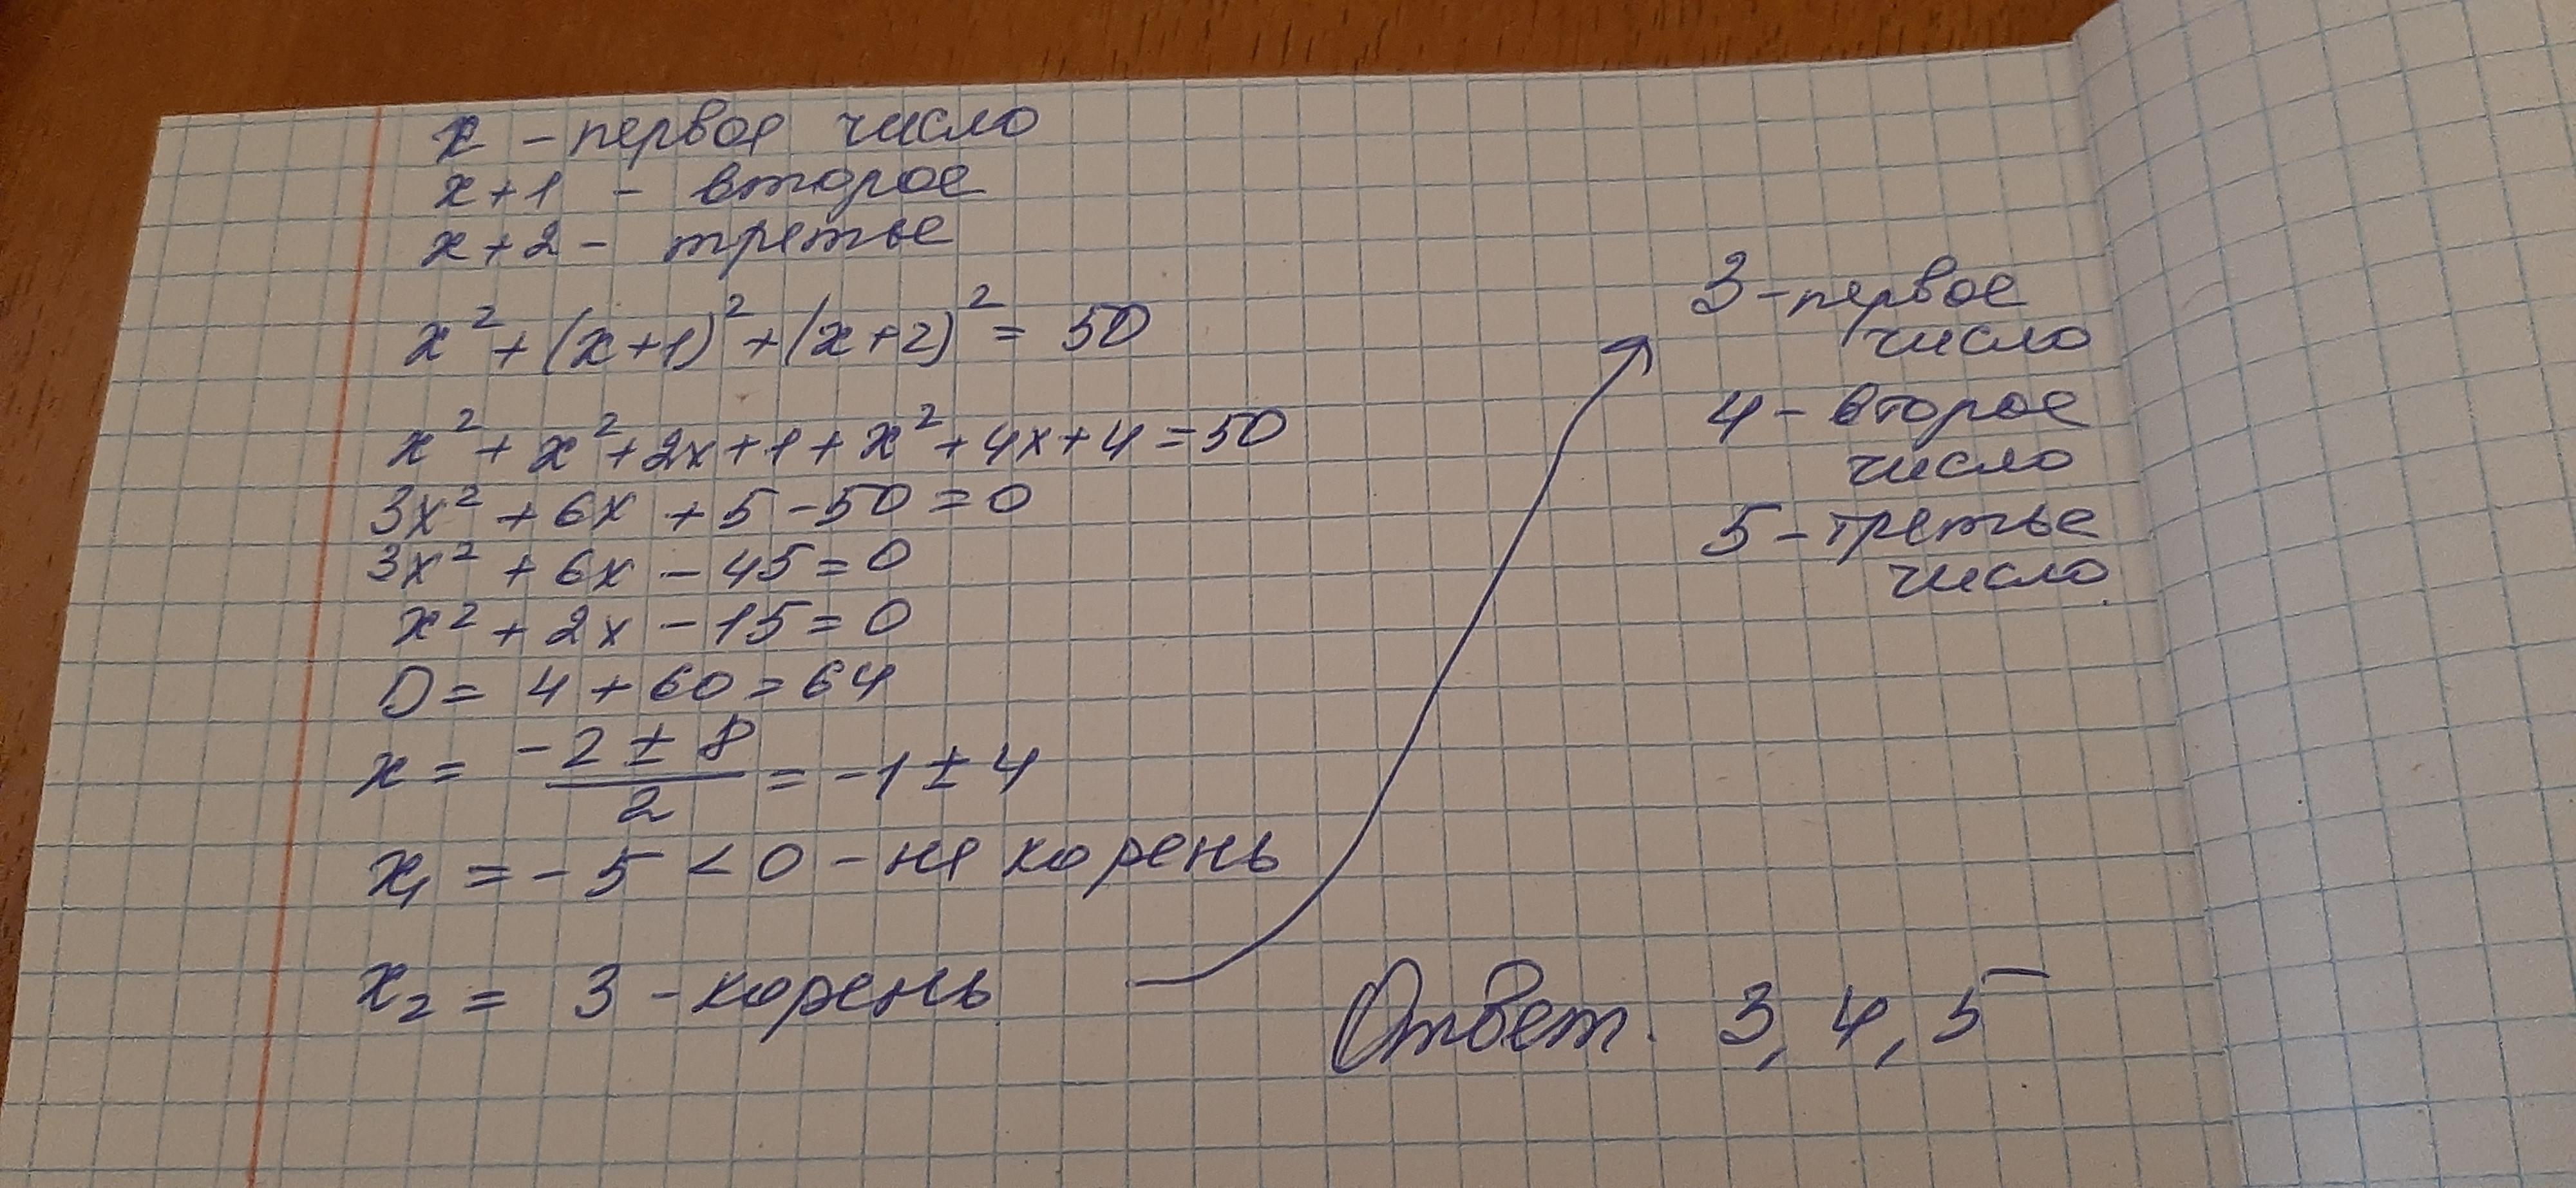 x - первое число
x+1 - второе
x+2 - третье
x² + (x+1)² + (x+2)² = 50
x² + x² + 2x + 1 + x² + 4x + 4 = 50
3x² + 6x + 5 - 50 = 0
3x² + 6x - 45 = 0
x² + 2x - 15 = 0
D = 4 + 60 = 64
x = (-2 ± 8)/2 = -1 ± 4
x₁ = -5 < 0 - не корень
x₂ = 3 - корень
3 - первое
число
4 - второе
число
5 - третье
число
Ответ. 3, 4, 5